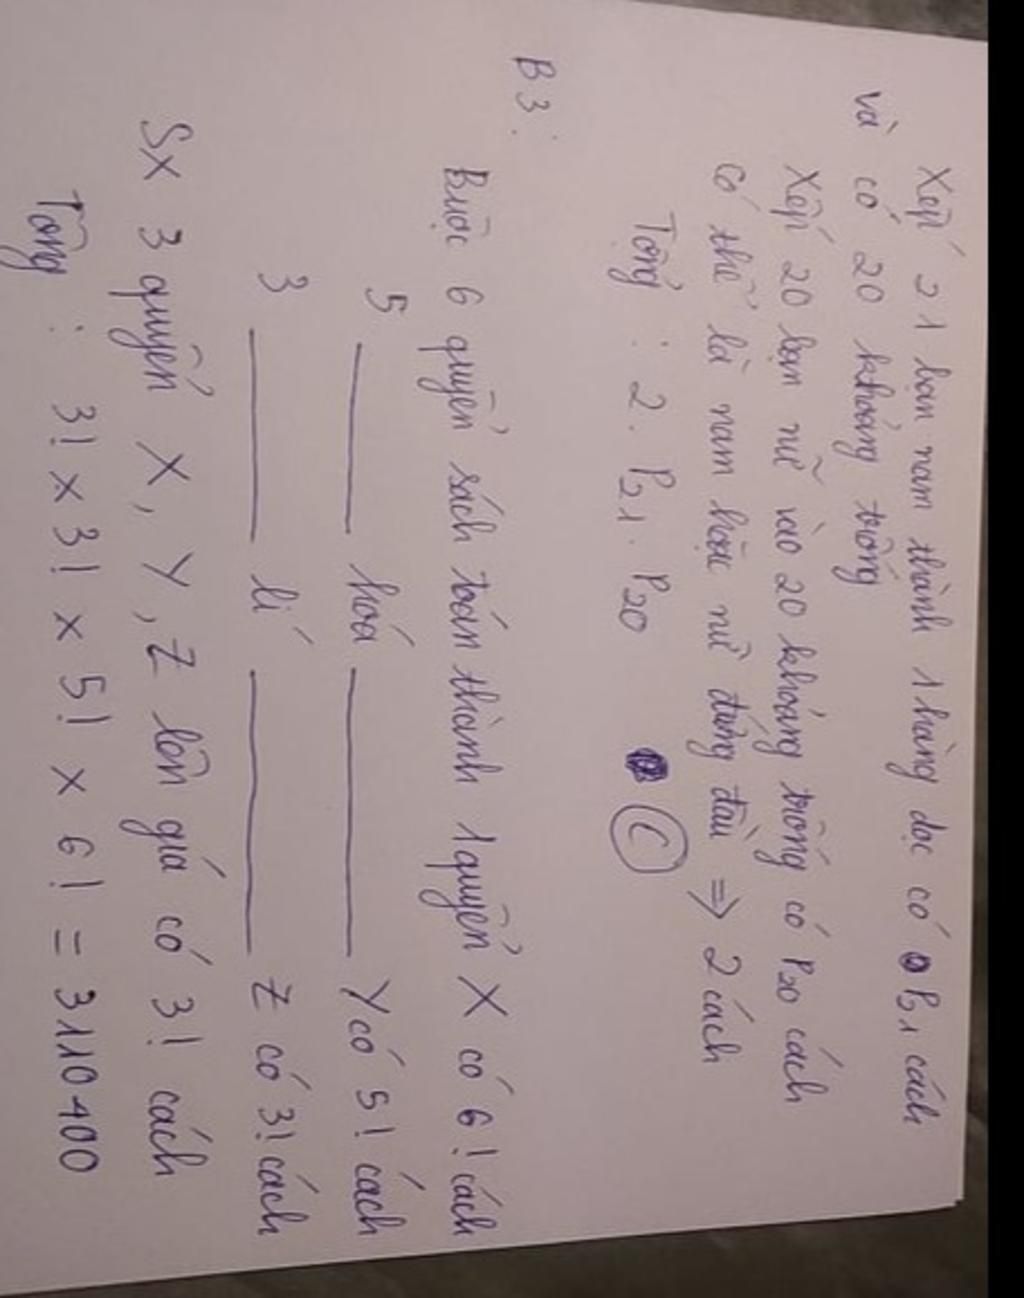 Xếp 21 bạn nam thành 1 hàng dọc có P21 cách
và có 20 khoảng trống
Xếp 20 bạn nữ vào 20 khoảng trống có P20 cách
có thể là nam hoặc nữ đứng đầu => 2 cách
Tổng : 2. P21. P20 C
B3:
Buộc 6 quyển sách toán thành 1 quyển X có 6! cách
5 ——— hoá ——— Y có 5! cách
3 ——— lí ——— Z có 3! cách
SX 3 quyển X, Y, Z lên giá có 3! cách
Tổng : 3! x 3! x 5! x 6! = 3110400